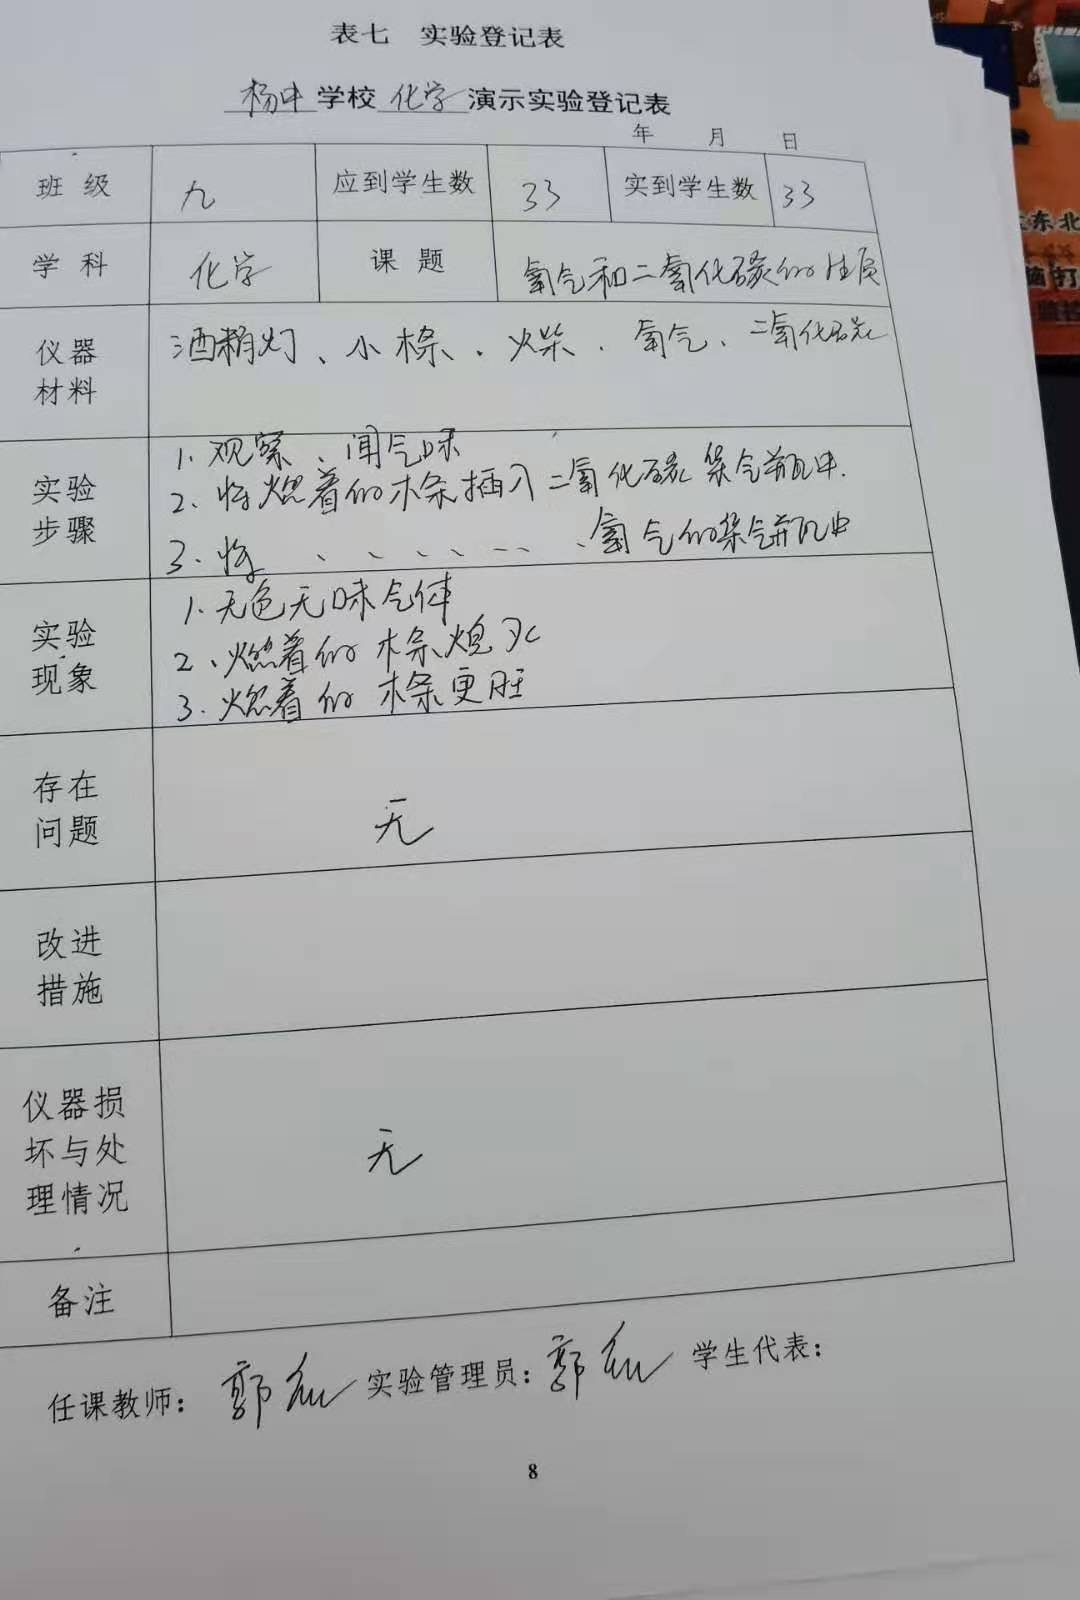 表七 实验登记表
杨中学校化学演示实验登记表
年 月 日
班级 九 应到学生数 33 实到学生数 33
学科 化学 课题 氧气和二氧化碳的性质
仪器材料 酒精灯、小木条、火柴、氧气、二氧化碳
实验步骤
1.观察、闻气味
2、将燃着的木条插入二氧化碳集气瓶中.
3.将、、、、、、、氧气的集气瓶中
实验现象
1.无色无味气体
2、燃着的木条熄灭
3.燃着的木条更旺
存在问题 无
改进措施
仪器损坏与处理情况 无
备注
任课教师: 郭 实验管理员: 郭 学生代表:
8
东北
打